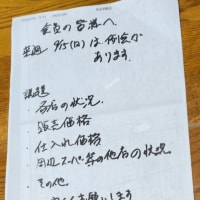 会員の皆様へ
来週 9/5(日)は例会が
あります.
議題
・各店の状況
・販売価格
・仕入れ価格
・周辺スーパー等の他店の状況
・その他
お願いします